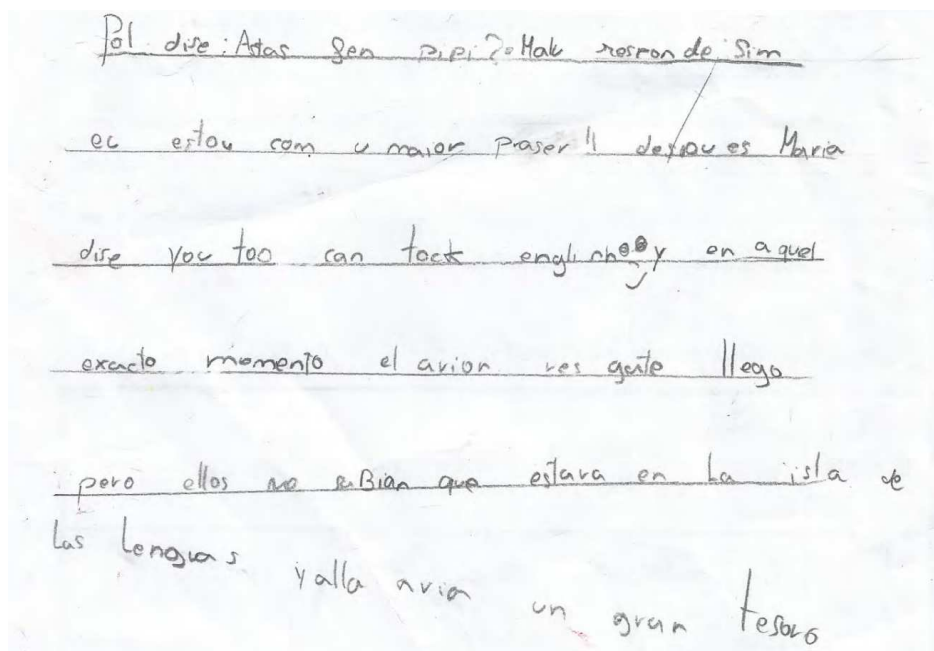 Pol dise: Astas fen pipi? Malu responde Sim
eu estou com u maior praser!! despues Maria
dise you too can tack english y en aquel
exacto momento el avion resgate llego
pero ellos no saBian que estava en La isla de
Las Lenguas y alla avia un gran tesoro